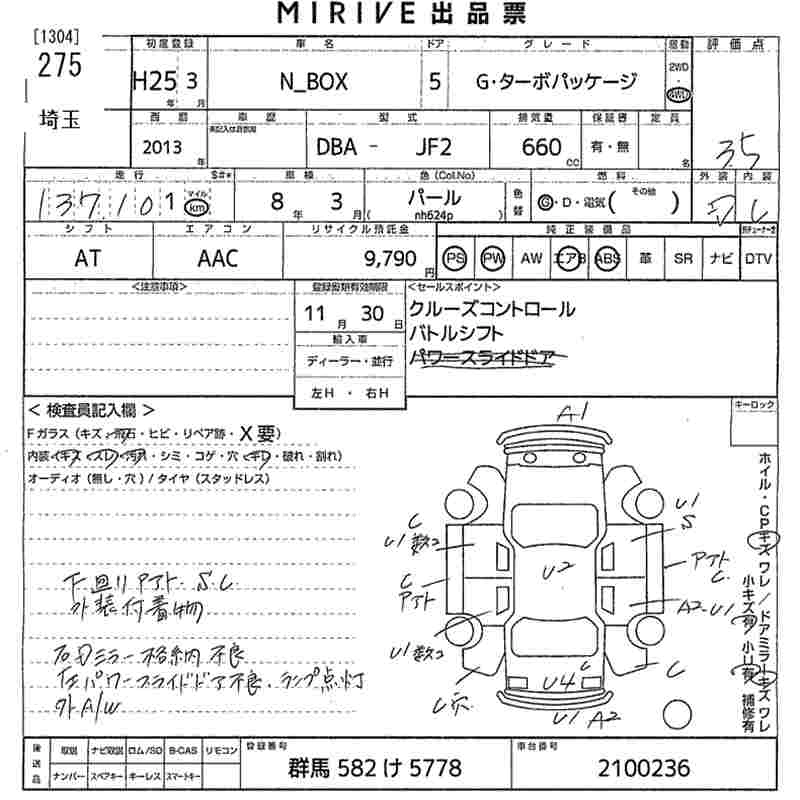 MIRIVE 出品票
[1304]
275
埼玉
初度登録 車名 ドア グレード 駆動 評価点
H25 3 N_BOX 5 G・ターボパッケージ 2WD・4WD
年 月
西暦 車歴 型式 排気量 保証書 定員
未記入は自家用
2013 年 DBA - JF2 660 cc 有・無 名 3.5
走行 $#* 車検 色(Col.No) 燃料 外装 内装
137,101 マイル km 8 年 3 月 パール (nh624p) 色替 G・D・電気(その他 ) D C
シフト エアコン リサイクル預託金 純正装備品
AT AAC 9,790 円 PS PW AW エアB ABS 革 SR ナビ DTV
<注意事項> 登録書類有効期限 <セールスポイント>
11 月 30 日 クルーズコントロール
輸入車 パドルシフト
ディーラー・並行 パワースライドドア
左H ・ 右H
< 検査員記入欄 > キーロック
Fガラス (キズ・飛石・ヒビ・リペア跡・X要)
内装 (キズ・スレ・汚れ・シミ・コゲ・穴・ギレ・破れ・割れ)
オーディオ (無し・穴) / タイヤ (スタッドレス)
A1
U1
S
C
U1 数コ
C
アト
U2
アト
C
A2 U1
U1 数コ
C穴
C
U4
C
U1 A2
下回りアト. S. C
外装付着物
右Dミラー格納不良
左パワースライドドア不良. ランプ点灯
外A/W
ホイル・CPキズ ワレ / ドアミラーキズ ワレ
小キズ有 小U有 補修有
後送品 取説 ナビ取説 ロム/SD B-CAS リモコン 登録番号 車台番号
ナンバー スペアキー キーレス スマートキー 群馬 582 け 5778 2100236